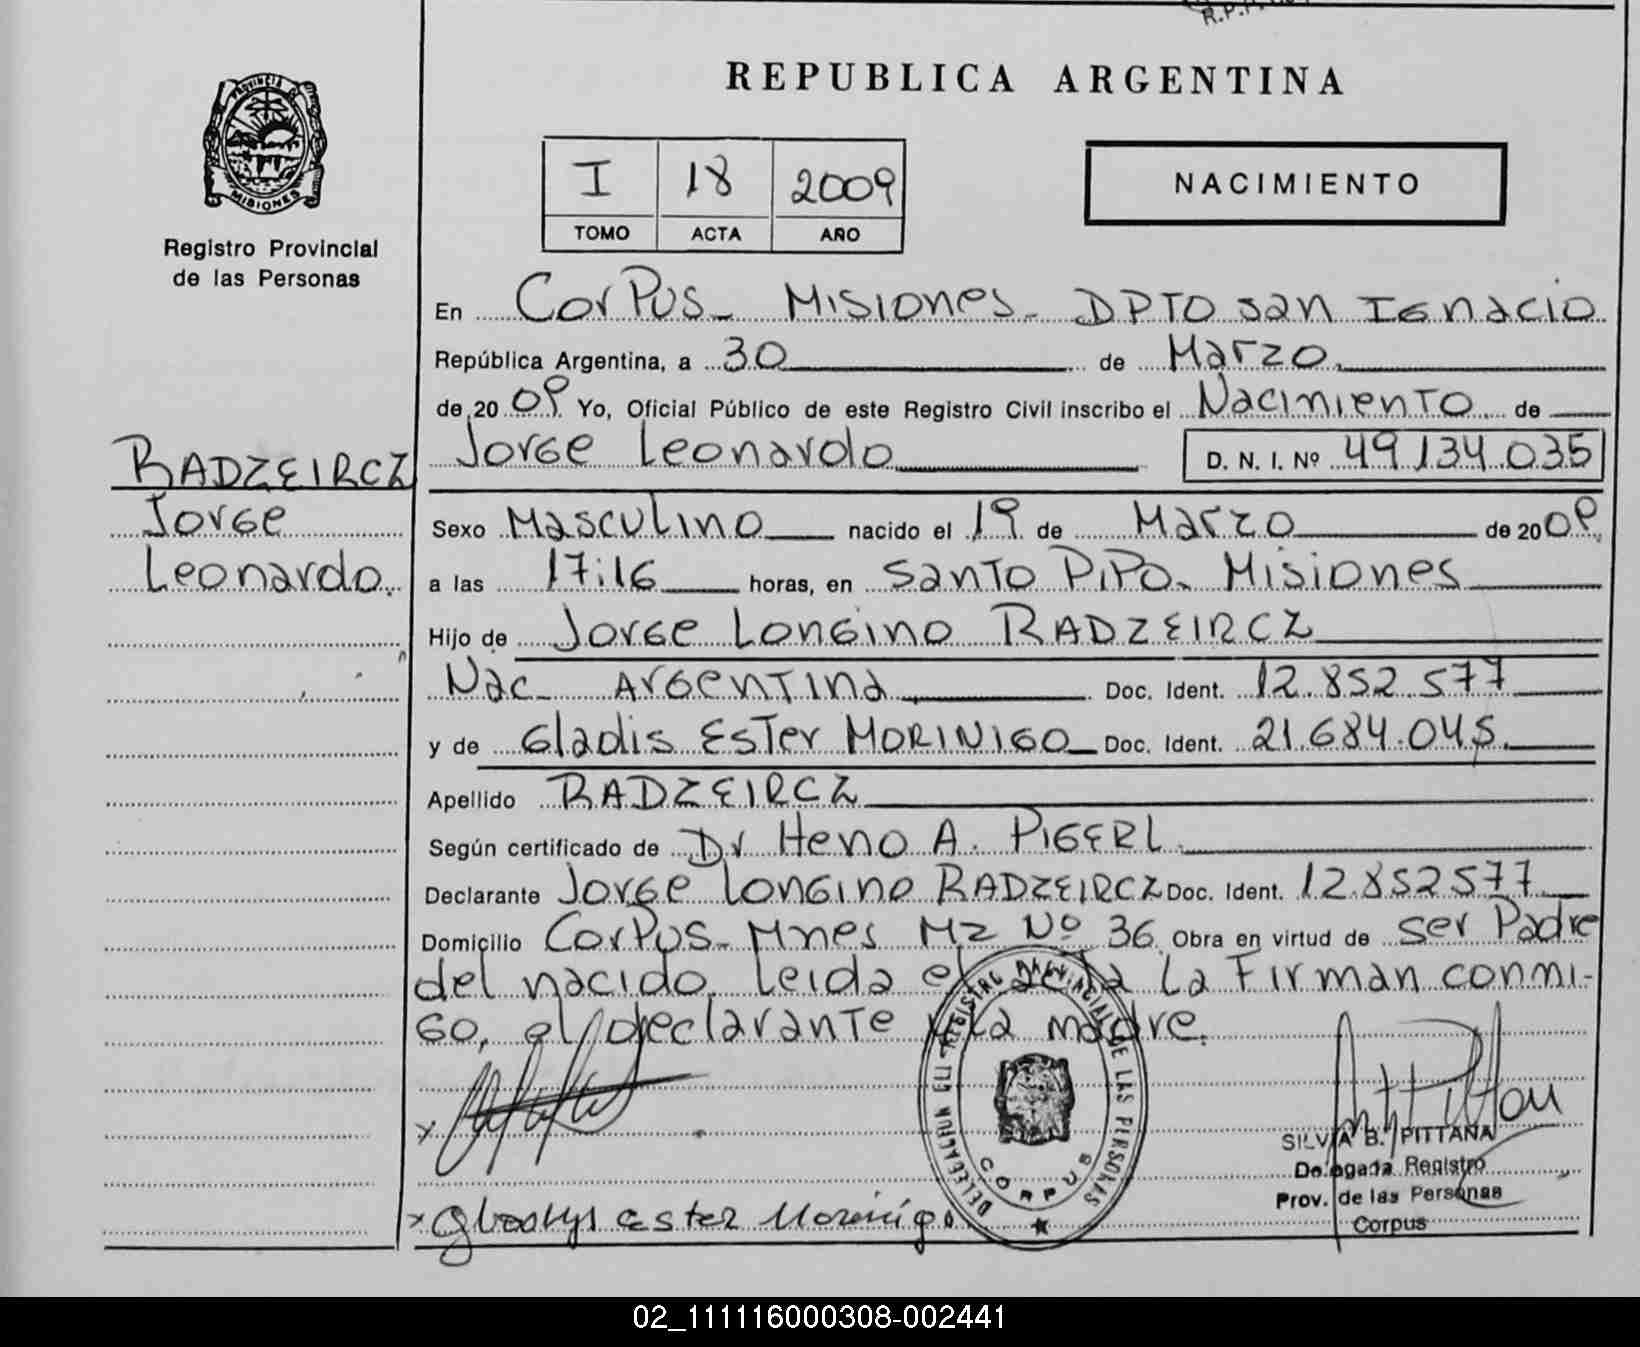 R.P.P.
REPUBLICA ARGENTINA
PROVINCIA DE
MISIONES
Registro Provincial
de las Personas
I 18 2009
TOMO ACTA AÑO
NACIMIENTO
En Corpus_ Misiones_ DPTO san Ignacio
República Argentina, a 30 de Marzo
de 20 09 Yo, Oficial Público de este Registro Civil inscribo el Nacimiento de
Jorge Leonardo D. N. I. Nº 49.134.035
RADZEIRCZ
Jorge
Leonardo.
Sexo Masculino nacido el 19 de Marzo de 20 09
a las 17:16 horas, en Santo Pipo_ Misiones
Hijo de Jorge Longino RADZEIRCZ
Nac_ Argentina Doc. Ident. 12.852.577
y de Gladis Ester MORINIGO Doc. Ident. 21.684.045
Apellido RADZEIRCZ
Según certificado de Dr Heno A. PIGERL
Declarante Jorge Longino RADZEIRCZ Doc. Ident. 12.852577
Domicilio Corpus_ Mnes Mz Nº 36. Obra en virtud de ser Padre
del nacido. Leida el acta La Firman conmi-
go, el declarante y la madre.
DELEGACION REGISTRO PROVINCIAL DE LAS PERSONAS
CORPUS
SILVIA B. PITTANA
Delegada Registro
Prov. de las Personas
Corpus
x Gladys Ester Morinigo
02_111116000308-002441